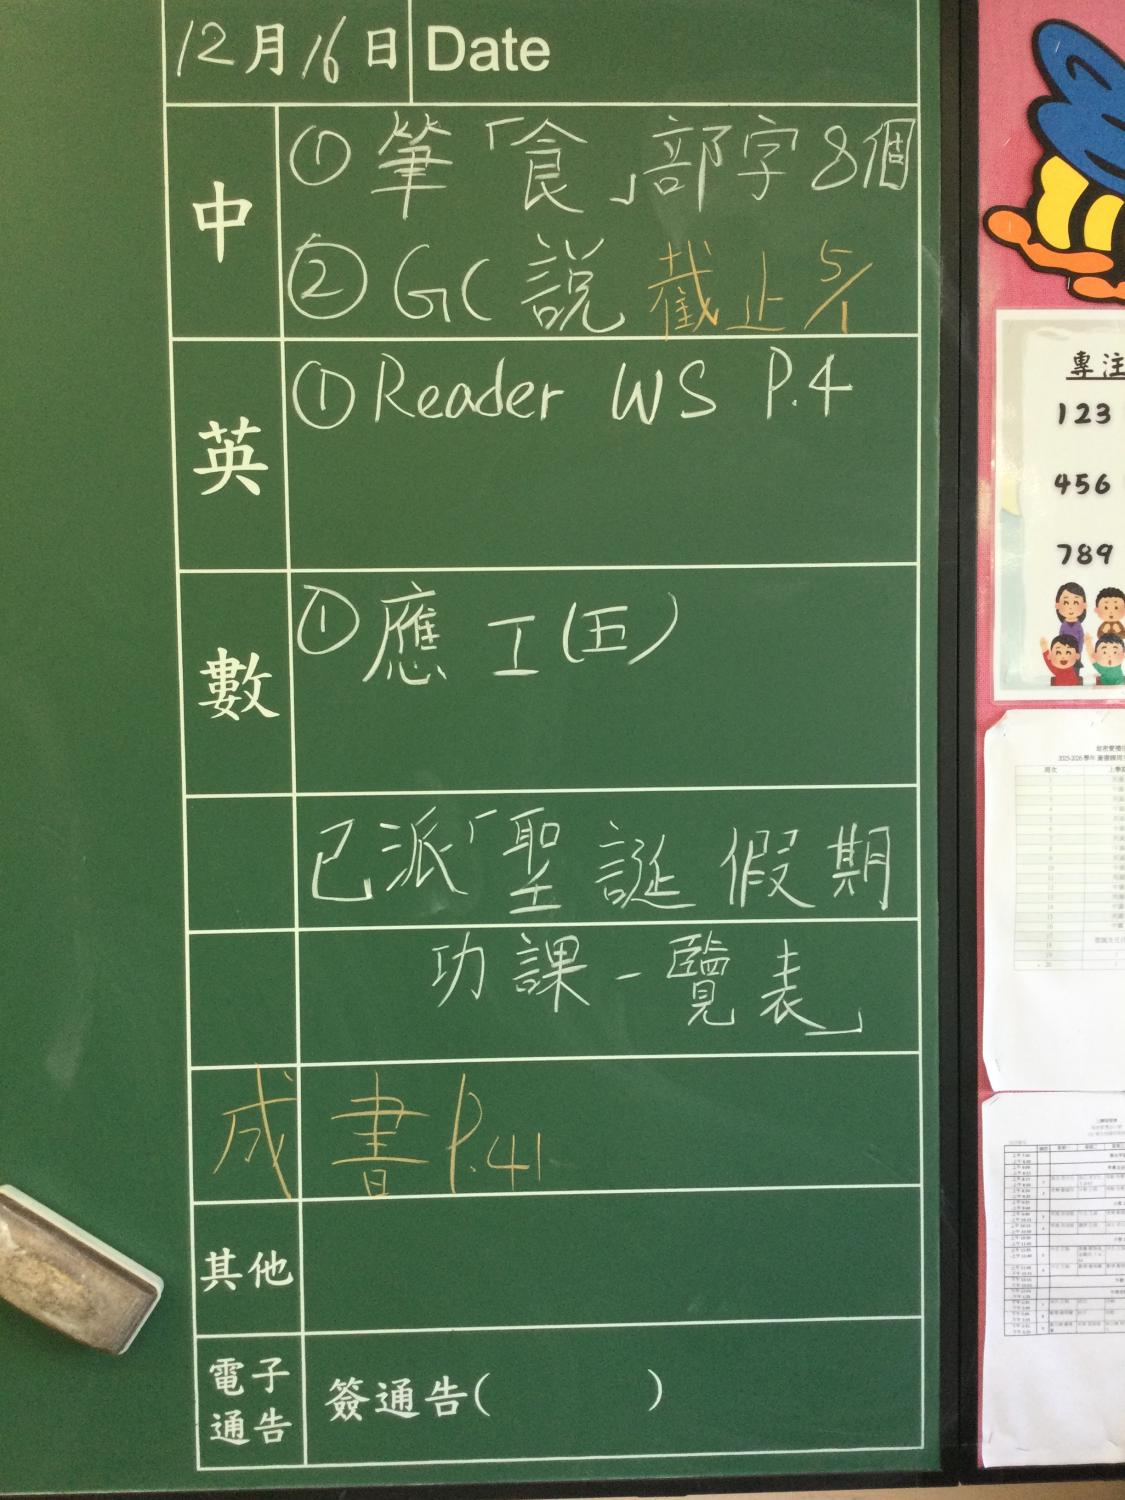 12月16日 Date
中
①筆「食」部字8個
②GC 說 截止5/1
英
①Reader WS P.4
數
①應 工(五)
已派「聖誕假期
功課一覽表」
成書P.41
其他
電子
通告
簽通告( )
專注
123
456
789